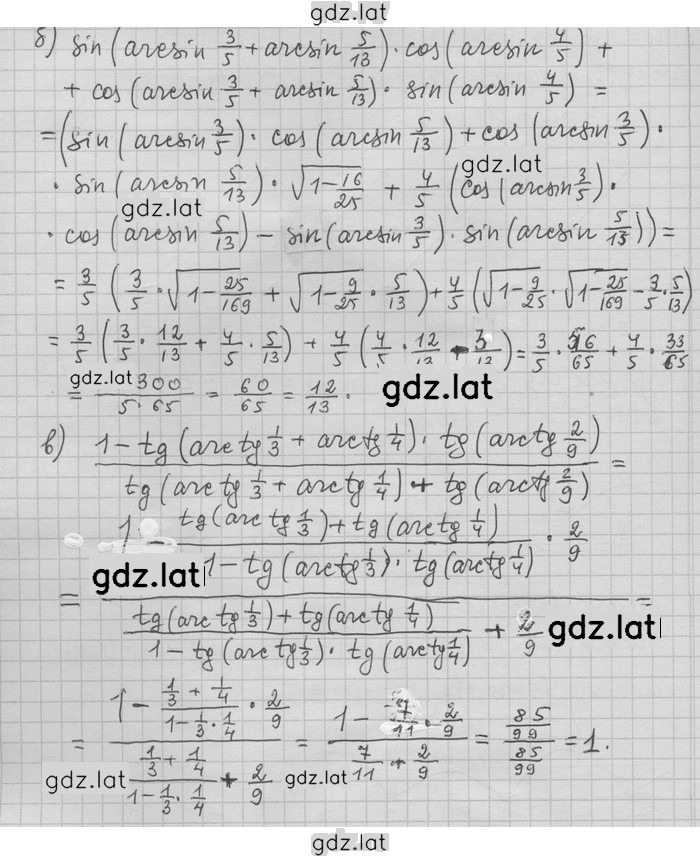 gdz.lat
б) sin(arcsin 3/5 + arcsin 5/13) · cos(arcsin 4/5) +
+ cos(arcsin 3/5 + arcsin 5/13) · sin(arcsin 4/5) =
= (sin(arcsin 3/5) · cos(arcsin 5/13) + cos(arcsin 3/5) ·
gdz.lat
· sin(arcsin 5/13) · √(1-16/25) + 4/5 (cos(arcsin 3/5) ·
gdz.lat
· cos(arcsin 5/13) - sin(arcsin 3/5) · sin(arcsin 5/13)) =
= 3/5 (3/5 · √(1-25/169) + √(1-9/25) · 5/13) + 4/5 (√(1-9/25) · √(1-25/169) - 3/5 · 5/13)
= 3/5 (3/5 · 12/13 + 4/5 · 5/13) + 4/5 (4/5 · 12/13 - 3/13) = 3/5 · 56/65 + 4/5 · 33/65
gdz.lat
= 300/(5·65) = 60/65 = 12/13 .
gdz.lat
в) (1 - tg(arctg 1/3 + arctg 1/4) · tg(arctg 2/9)) / (tg(arctg 1/3 + arctg 1/4) + tg(arctg 2/9)) =
gdz.lat
= (1 - (tg(arctg 1/3) + tg(arctg 1/4)) / (1 - tg(arctg 1/3) · tg(arctg 1/4)) · 2/9) / ((tg(arctg 1/3) + tg(arctg 1/4)) / (1 - tg(arctg 1/3) · tg(arctg 1/4)) + 2/9) =
gdz.lat
= (1 - (1/3 + 1/4) / (1 - 1/3 · 1/4) · 2/9) / ((1/3 + 1/4) / (1 - 1/3 · 1/4) + 2/9) = (1 - 7/11 · 2/9) / (7/11 + 2/9) = (85/99) / (85/99) = 1.
gdz.lat
gdz.lat
gdz.lat